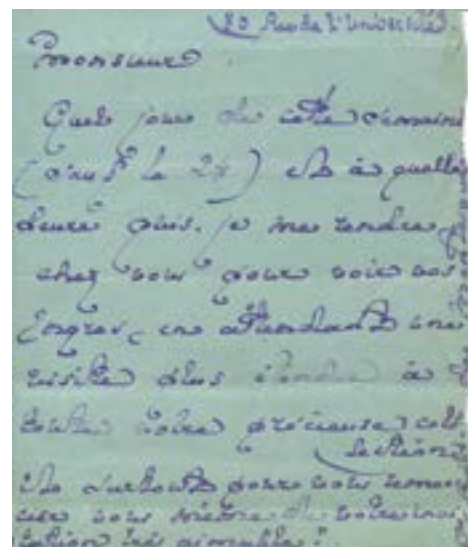 80 Rue de l'Université.
Monsieur
Quel jour de cette semaine
(sauf le 27) et à quelle
heure puis-je me rendre
chez vous pour voir vos
Ingres, en attendant une
visite plus étendue à
toute votre précieuse col-
lection
Et surtout pour vous remer-
cier vous même de votre invi-
tation très aimable?